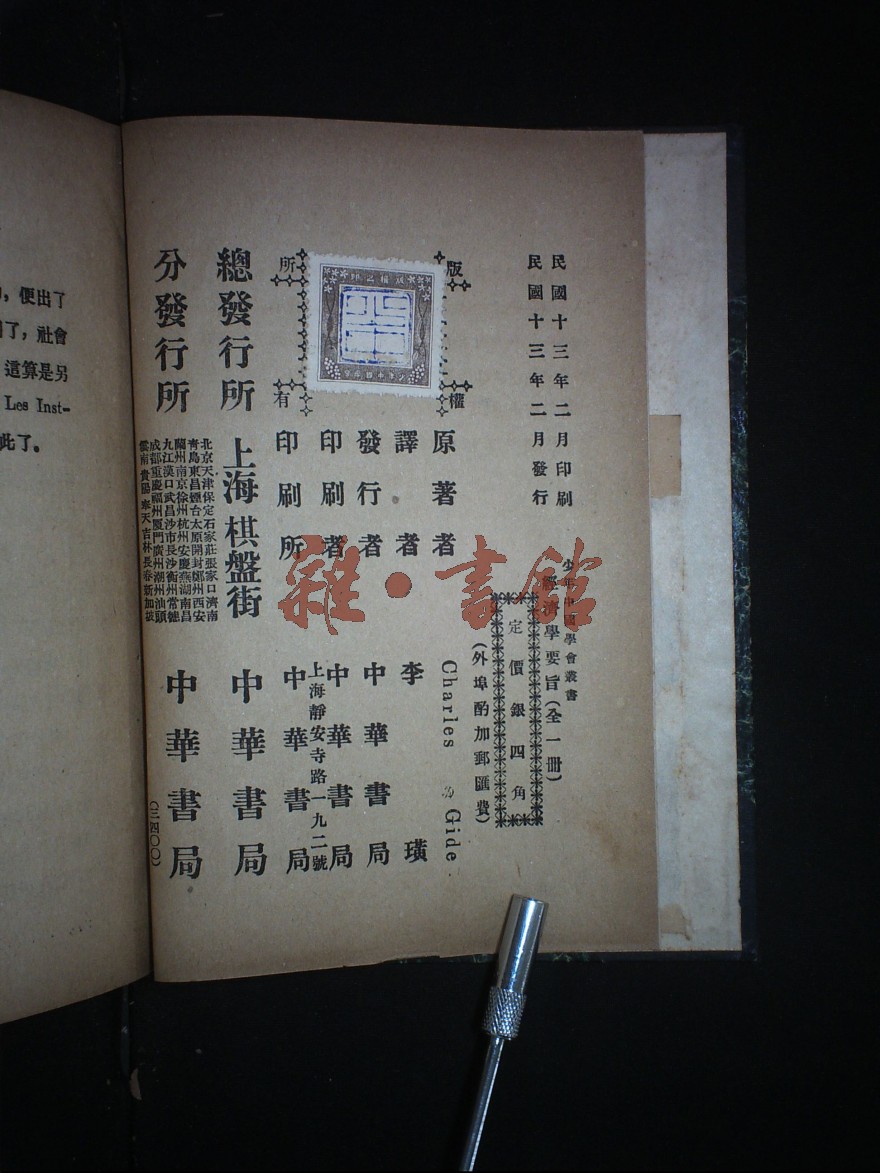 民國十三年二月印刷
民國十三年二月發行
少年中國學會叢書
經濟學要旨（全一冊）
定價銀四角
（外埠酌加郵匯費）
版權所有
版權之證
原著者 Charles Gide
譯者 李璜
發行者 中華書局
印刷者 中華書局
上海靜安寺路一九二號
印刷所 中華書局
總發行所 上海棋盤街 中華書局
分發行所 中華書局
北京天津保定石家莊張家口濟南
青島東昌煙台太原開封鄭州西安
蘭州南京徐州杭州安慶蕪湖南昌
九江漢口武昌沙市長沙衡州常德
成都重慶福州廈門廣州潮州汕頭
雲南貴陽奉天吉林長春新加坡
（三四〇〇）
雜·書館
，便出了
了，社會
這算是另
Les Inst-
此了。